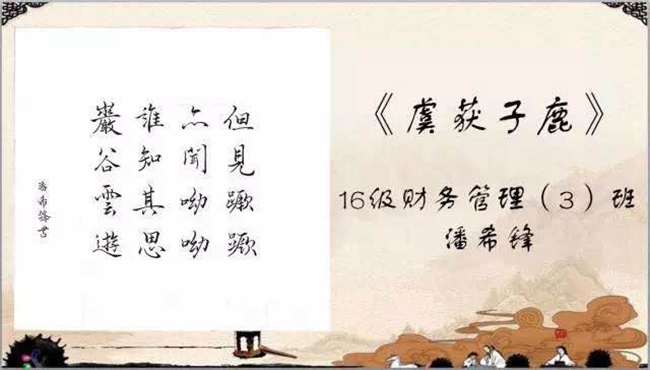 但見躑躅
亦聞呦呦
誰知其思
巖谷雲遊
潘希鋒書
《虞获子鹿》
16级财务管理（3）班
潘希锋